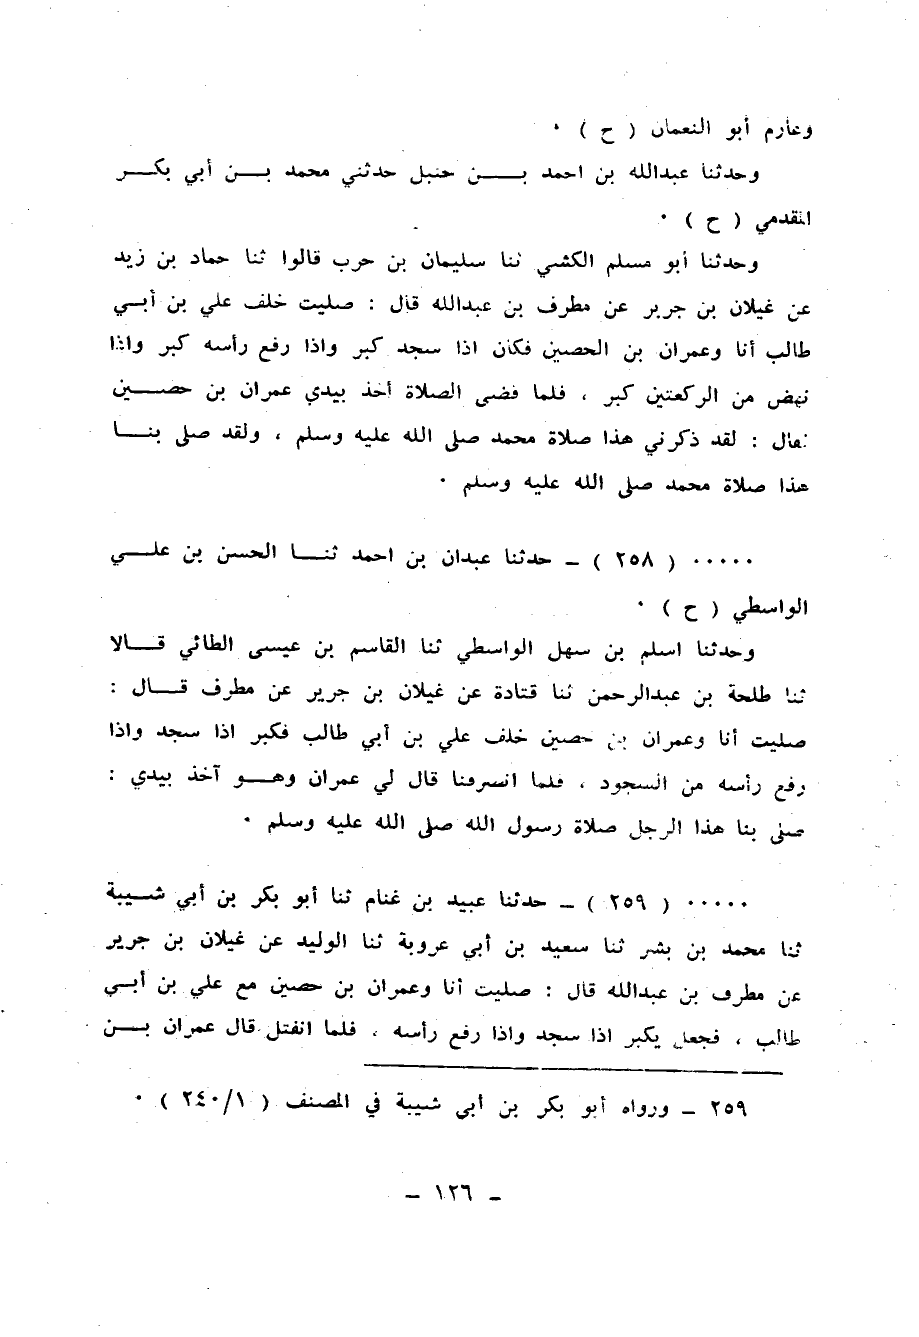 وعارم أبو النعمان ( ح ) ٠
وحدثنا عبدالله بن احمد بن حنبل حدثني محمد بن أبي بكر
المقدمي ( ح ) ٠
وحدثنا أبو مسلم الكشي ثنا سليمان بن حرب قالوا ثنا حماد بن زيد
عن غيلان بن جرير عن مطرف بن عبدالله قال : صليت خلف علي بن أبي
طالب أنا وعمران بن الحصين فكان اذا سجد كبر واذا رفع رأسه كبر واذا
نهض من الركعتين كبر ، فلما قضى الصلاة أخذ بيدي عمران بن حصين
فقال : لقد ذكرني هذا صلاة محمد صلى الله عليه وسلم ، ولقد صلى بنا
هذا صلاة محمد صلى الله عليه وسلم ٠
٠٠٠٠٠ ( ٢٥٨ ) ـ حدثنا عبدان بن احمد ثنا الحسن بن علي
الواسطي ( ح ) ٠
وحدثنا اسلم بن سهل الواسطي ثنا القاسم بن عيسى الطائي قالا
ثنا طلحة بن عبدالرحمن ثنا قتادة عن غيلان بن جرير عن مطرف قال :
صليت أنا وعمران بن حصين خلف علي بن أبي طالب فكبر اذا سجد واذا
رفع رأسه من السجود ، فلما انصرفنا قال لي عمران وهو آخذ بيدي :
صلى بنا هذا الرجل صلاة رسول الله صلى الله عليه وسلم ٠
٠٠٠٠٠ ( ٢٥٩ ) ـ حدثنا عبيد بن غنام ثنا أبو بكر بن أبي شيبة
ثنا محمد بن بشر ثنا سعيد بن أبي عروبة ثنا الوليد عن غيلان بن جرير
عن مطرف بن عبدالله قال : صليت أنا وعمران بن حصين مع علي بن أبي
طالب ، فجعل يكبر اذا سجد واذا رفع رأسه ، فلما انفتل قال عمران بن
٢٥٩ ـ ورواه أبو بكر بن أبي شيبة في المصنف ( ٢٤٠/١ ) ٠
ـ ١٢٦ ـ